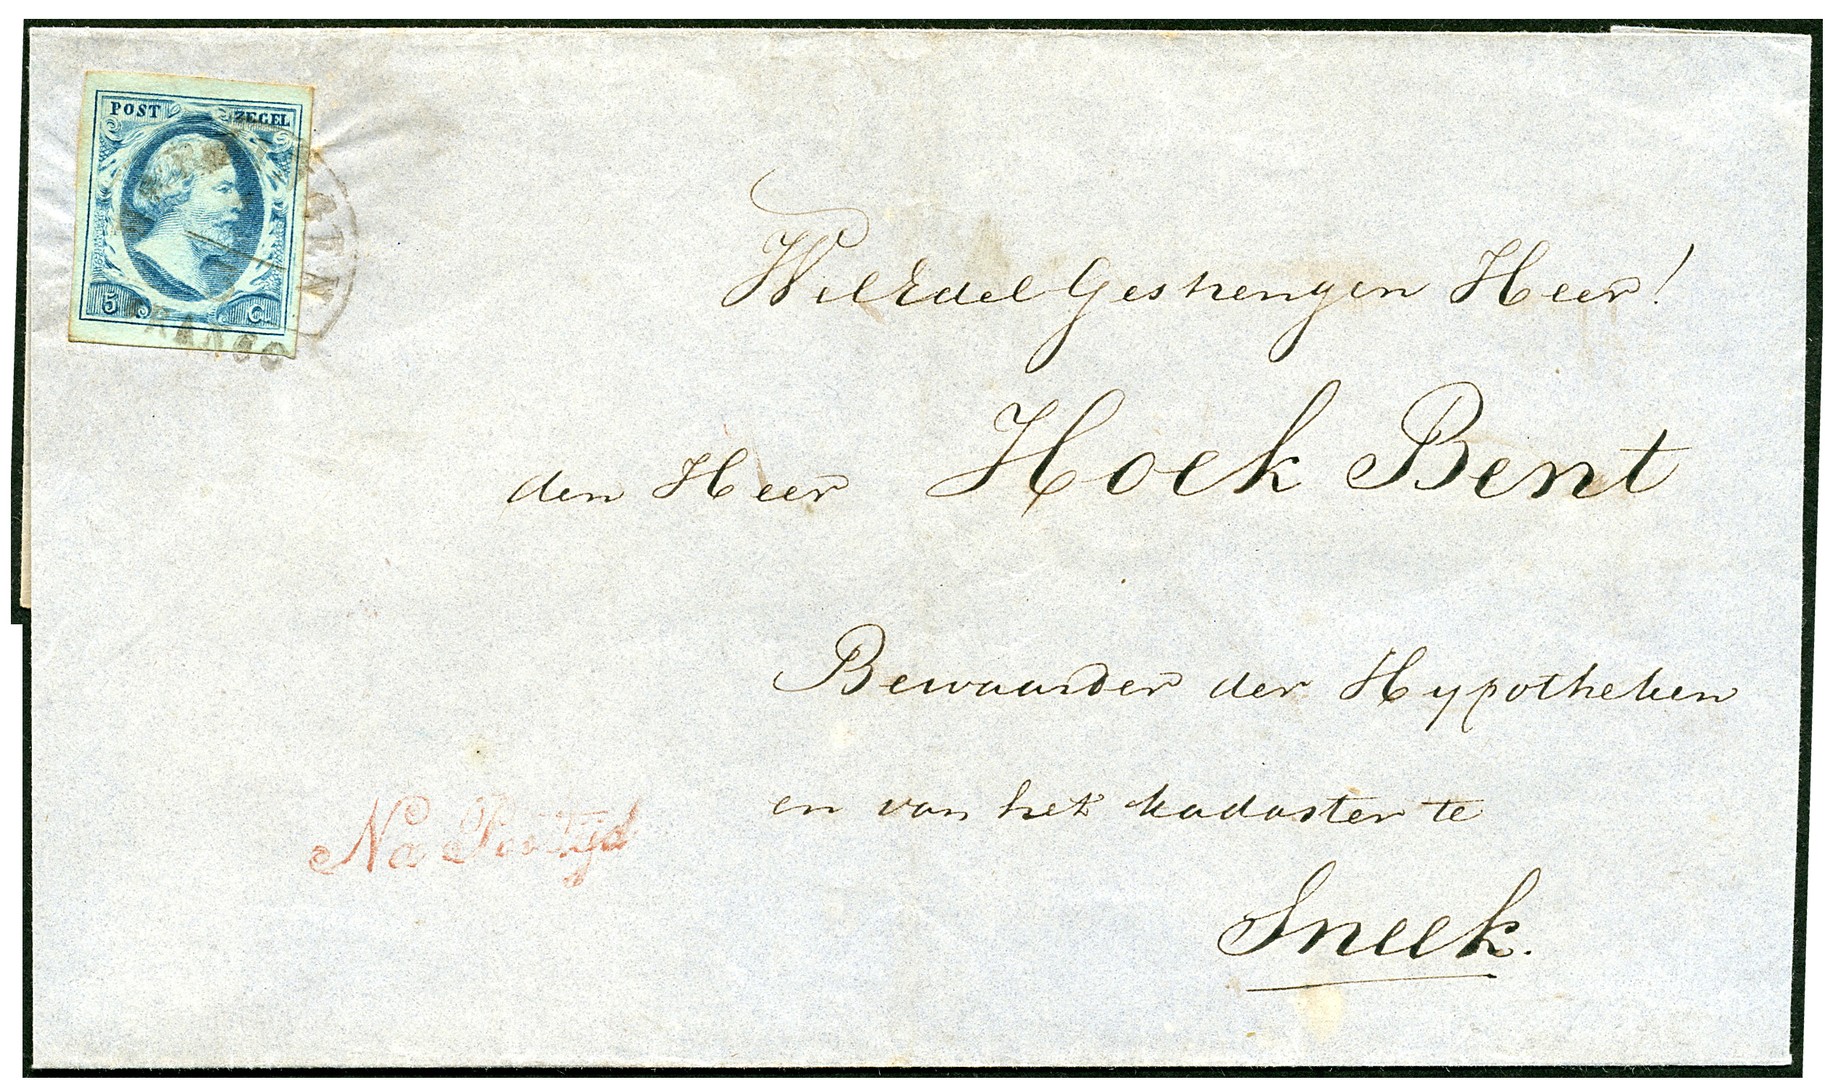 POST ZEGEL
5 C.
FRANCO
WelEdelGestrengen Heer!
den Heer Hoek Bent
Bewaarder der Hypotheken
en van het kadaster te
Sneek.
Na Posttijd